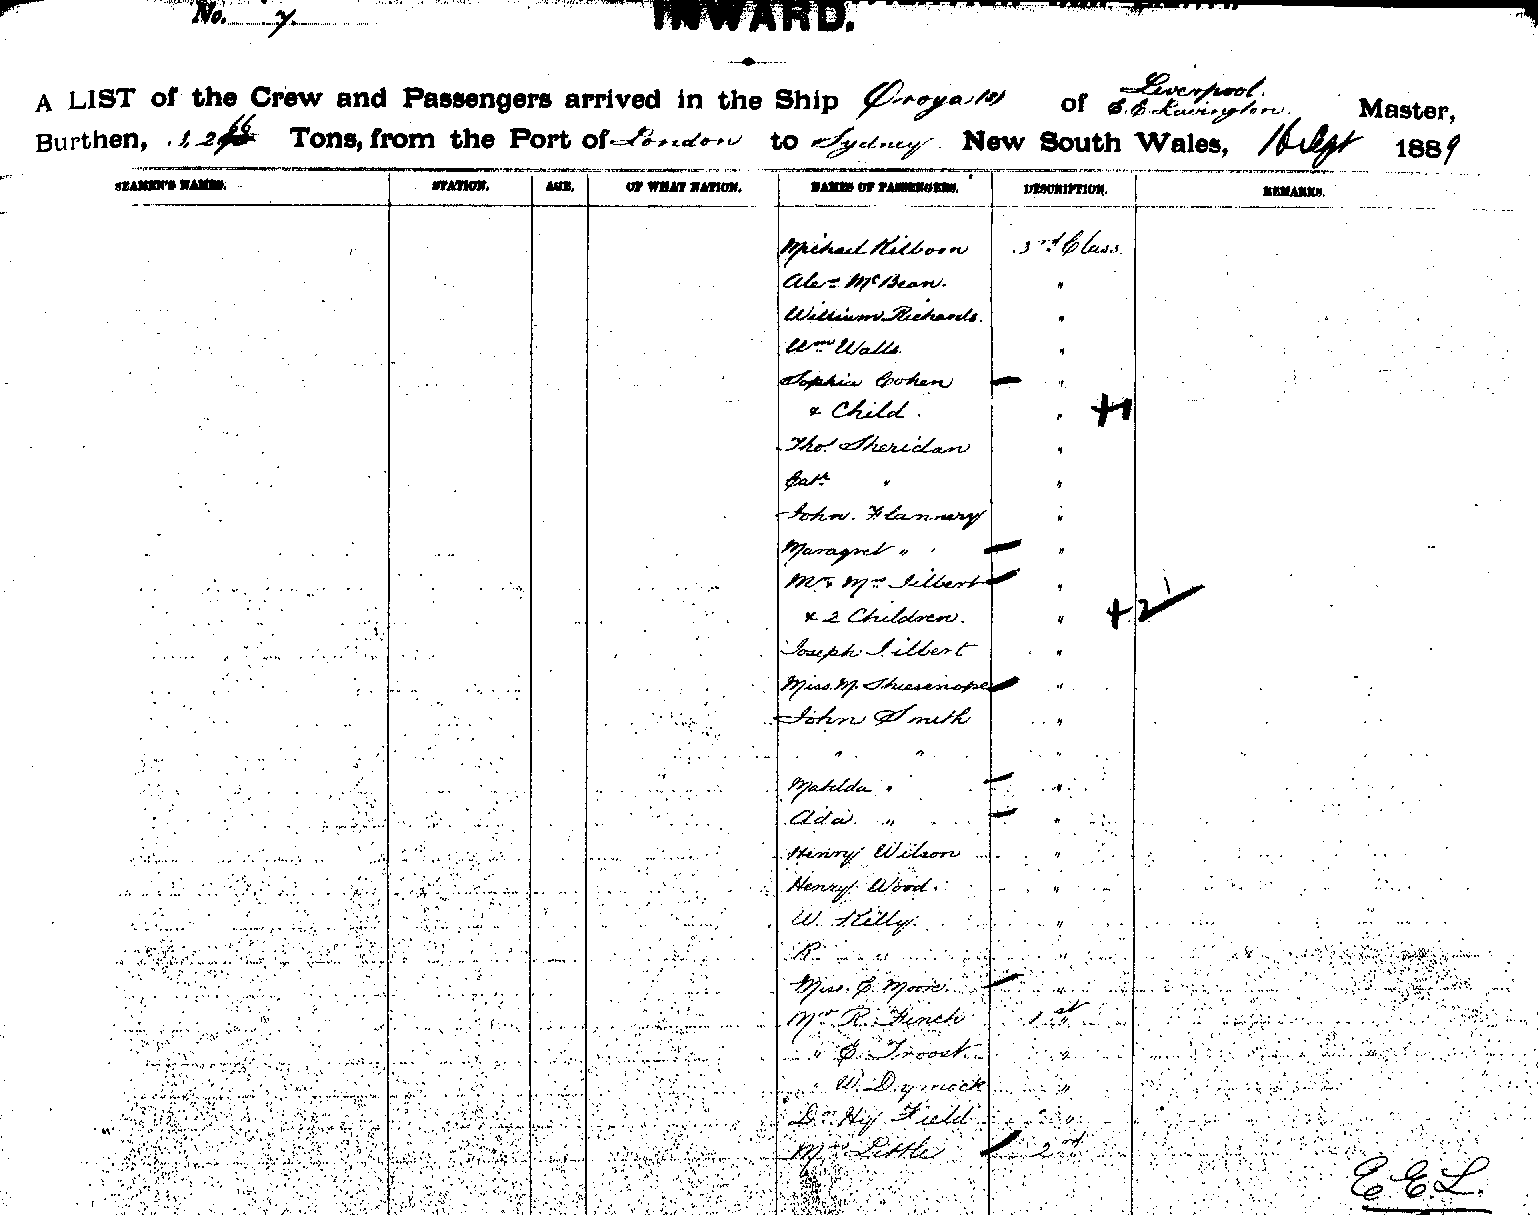 No. 7.
INWARD.
A LIST of the Crew and Passengers arrived in the Ship Oroya (s) of Liverpool. E. E. Lavington Master,
Burthen, Tons, from the Port of London to Sydney New South Wales, 16 Sept 1889
SEAMEN'S NAMES. STATION. AGE. OF WHAT NATION. NAMES OF PASSENGERS. DESCRIPTION. REMARKS.
Michael Kilboon 3rd Class
Alexr McBean. "
William Richards. "
Wm Walls. "
Sophia Cohen "
& Child. " +1
Thos Sheridan "
Cath " "
John Flannery "
Maragret " "
Mr & Mrs Gilbert "
& 2 Children. " +2
Joseph Gilbert "
Miss M. "
John Smith "
" " "
Matilda " "
Ada " "
Henry Wilson "
Henry Wood. "
W. Killy. "
R. " "
Miss. E Moore "
Mr R. Finch 1st "
" E. Troost "
" W. Dymock "
Dr Hy Field "
Mrs Little 2nd
E. E. L.